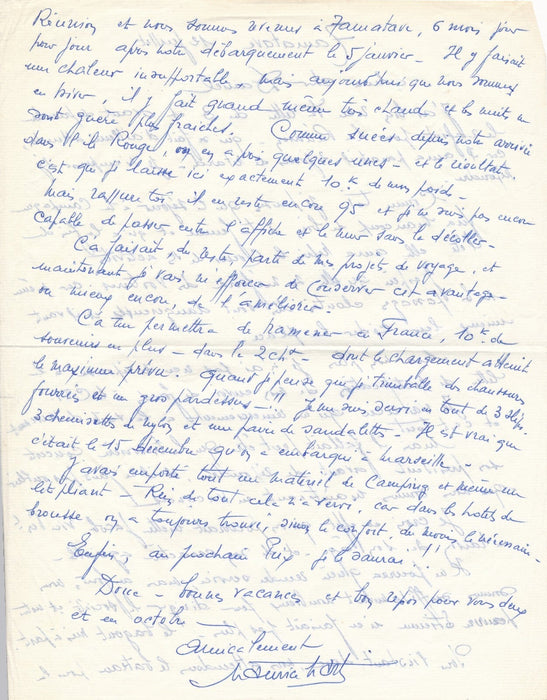 Réunion et nous sommes revenus à Tamatave, 6 mois jour
pour jour après notre débarquement le 5 janvier - Il y faisait
une chaleur insupportable mais aujourd'hui que nous sommes
en hiver, il y fait quand même très chaud et les nuits ne
sont guère plus fraîches. Comme suées depuis notre arrivée
dans l'île Rouge, on en a pris quelques unes - et le résultat
c'est que je laisse ici exactement 10k de mon poids -
Mais, rassure toi, il en reste encore 95 et je ne suis pas encore
capable de passer entre l'affiche et le mur sans la décoller -
Ça faisait du reste, partie de mes projets de voyage, et
maintenant je vais m'efforcer de conserver cet avantage -
ou mieux encore, de l'améliorer.
Ça me permettra de ramener en France, 10k de
souvenirs en plus - dans la 2ch - dont le chargement atteint
le maximum prévu. Quand je pense que je trimballe des chaussures
fourrées et un gros pardessus - !! Je me suis servi en tout de 3 slips
3 chemisettes de nylon et une paire de sandalettes - Il est vrai que
c'était le 15 décembre qu'on a embarqué à Marseille -
J'avais emporté tout un matériel de Camping et même un
lit pliant - Rien de tout cela n'a servi, car dans les hôtels de
brousse, on a toujours trouvé, sinon le confort, du moins le nécessaire -
Enfin, au prochain Prix je le saurai !!
Donc - bonnes vacances et bon repos pour vous deux
et en octobre -
amicalement